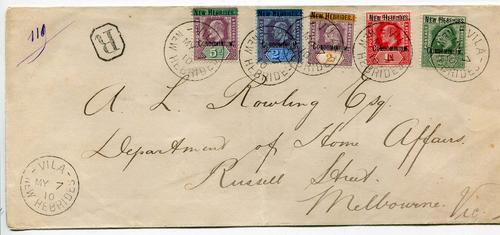 110
R
NEW HEBRIDES.
Condominium.
5d
NEW HEBRIDES.
Condominium.
2½d
NEW HEBRIDES.
Condominium.
2d
NEW HEBRIDES.
Condominium.
1d
NEW HEBRIDES.
Condominium.
VILA
NEW HEBRIDES
A. L. Rowling Esq.
Department of Home Affairs.
Russell Street.
Melbourne.
Vic.
VILA
MY 7
10
NEW HEBRIDES